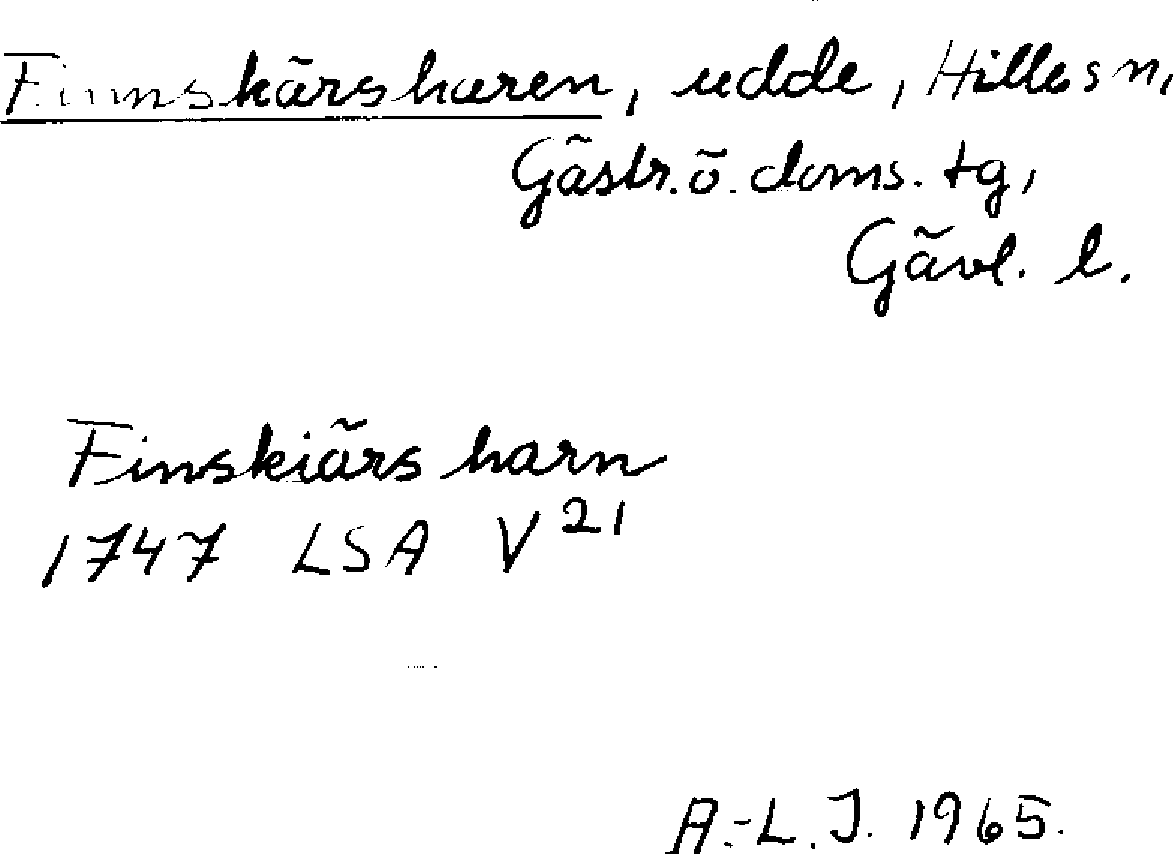 Finnskärsharen, udde, Hille sn,
Gästr. ö. doms. tg,
Gävl. l.
Finskiärs harn
1747 LSA V 21
A.-L. J. 1965.